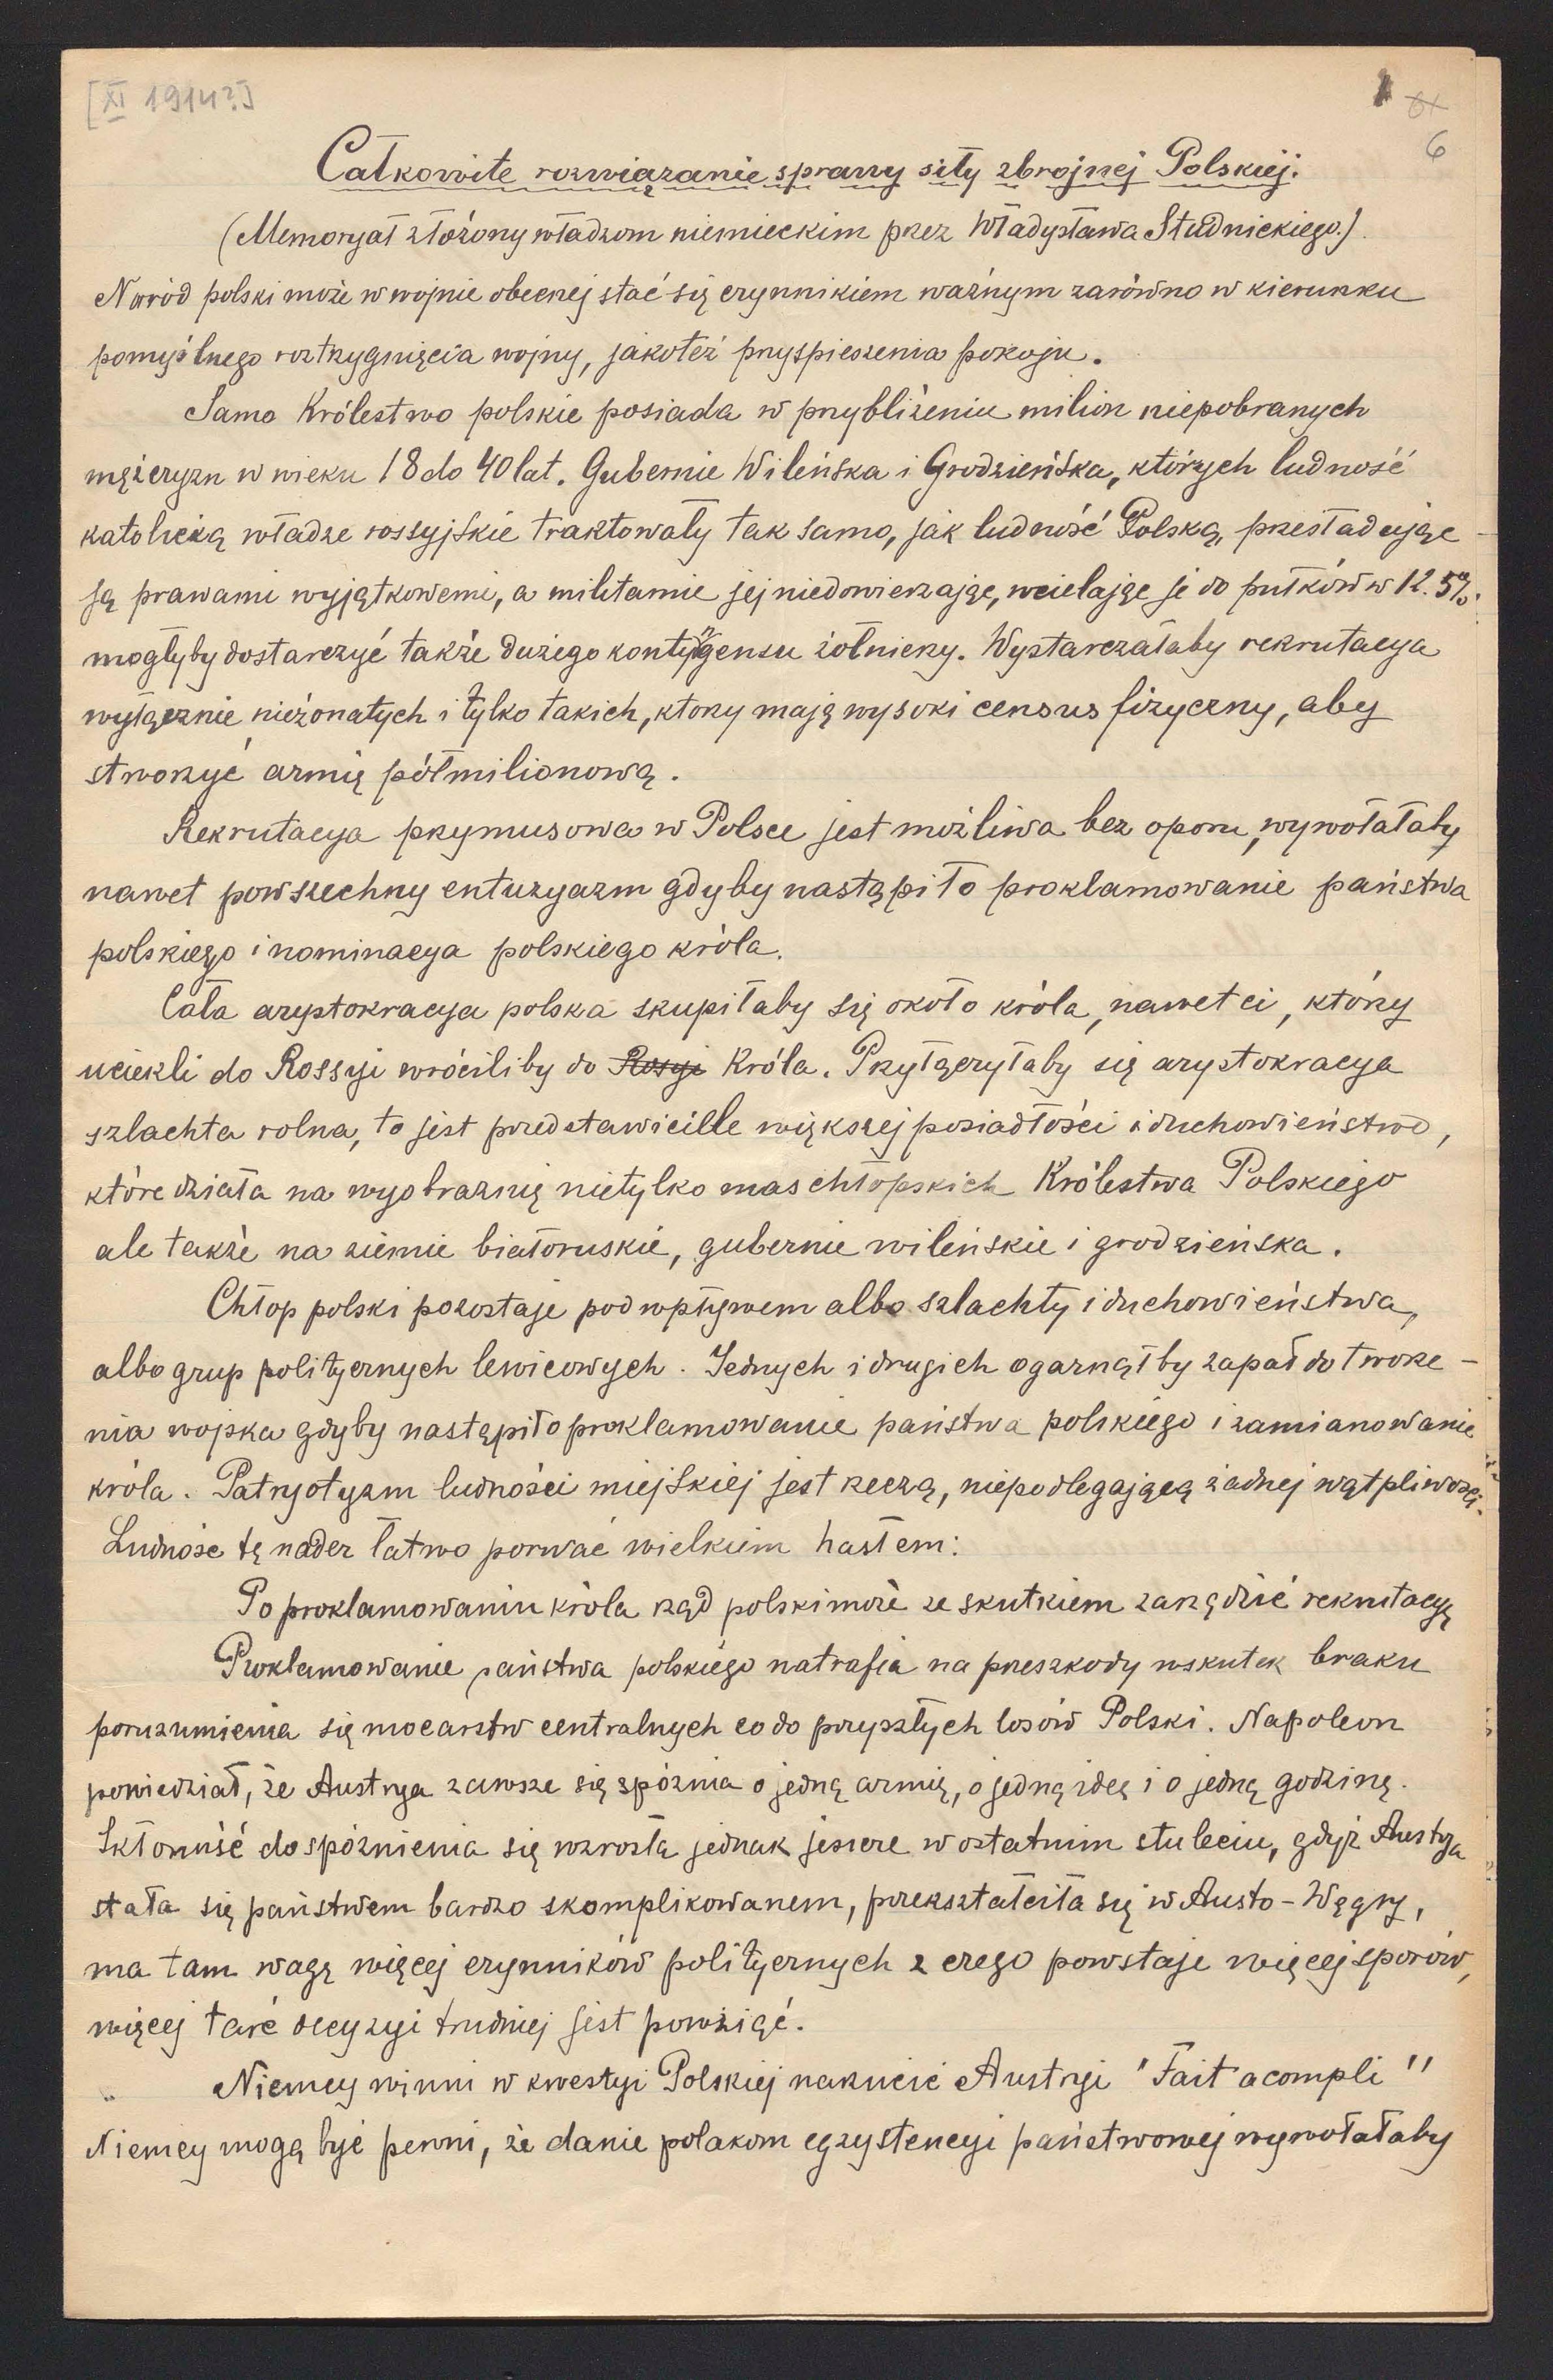 [XI 1914?]
1 61
6
Całkowite rozwiązanie sprawy siły zbrojnej Polskiej.
(Memoryał złożony władzom niemieckim przez Władysława Studnickiego.)
Naród polski może w wojnie obecnej stać się czynnikiem ważnym zarówno w kierunku
pomyślnego roztrzygnięcia wojny, jakoteż przyspieszenia pokoju.
Samo Królestwo polskie posiada w przybliżeniu milion niepobranych
mężczyzn w wieku 18 do 40 lat. Gubernie Wileńska i Grodzieńska, których ludność
katolicką władze rossyjskie traktowały tak samo, jak ludność Polską, prześladując
ją prawami wyjątkowemi, a militarnie jej niedowierzając, wcielając je do pułków w 12.5%.
mogłyby dostarczyć także dużego kontyngensu żołnierzy. Wystarczałaby rekrutacya
wyłącznie nieżonatych i tylko takich, którzy mają wysoki census fizyczny, aby
stworzyć armię półmilionową.
Rekrutacya przymusowa w Polsce jest możliwa bez oporu, wywołałaby
nawet powszechny entuzyazm gdyby nastąpiło proklamowanie państwa
polskiego i nominacya polskiego króla.
Cała arystokracya polska skupiłaby się około króla, nawet ci, którzy
uciekli do Rossyi wróciliby do Rosyi Króla. Przyłączyłaby się arystokracya
szlachta rolna, to jest przedstawicille większej posiadłości i duchowieństwo,
które działa na wyobraźnię nietylko mas chłopskich Królestwa Polskiego
ale także na ziemie białoruskie, gubernie wileńskie i grodzieńska.
Chłop polski pozostaje pod wpływem albo szlachty i duchowieństwa,
albo grup politycznych lewicowych. Jednych i drugich ogarnąłby zapał do tworze-
nia wojska gdyby nastąpiło proklamowanie państwa polskiego i zamianowanie
króla. Patryotyzm ludności miejskiej jest rzeczą, niepodlegającą żadnej wątpliwości.
Ludność tę nader łatwo porwać wielkiem hasłem:
Po proklamowaniu króla rząd polski może ze skutkiem zarządzić rekrutacyę
Proklamowanie państwa polskiego natrafia na przeszkody wskutek braku
porozumienia się mocarstw centralnych co do przyszłych losów Polski. Napoleon
powiedział, że Austrya zawsze się spóźnia o jedną armię, o jedną ideę i o jedną godzinę.
Skłonność do spóźnienia się wzrosła jednak jeszcze w ostatnim stuleciu, gdyż Austrya
stała się państwem bardzo skomplikowanem, przekształciła się w Austo-Węgry,
ma tam wagę więcej czynników politycznych z czego powstaje więcej sporów,
więcej tarć decyzyi trudniej jest powziąć.
Niemcy winni w kwestyi Polskiej narzucić Austryi "Fait acompli"
Niemcy mogą być pewni, że danie polakom egzystencyi państwowej wywołałaby